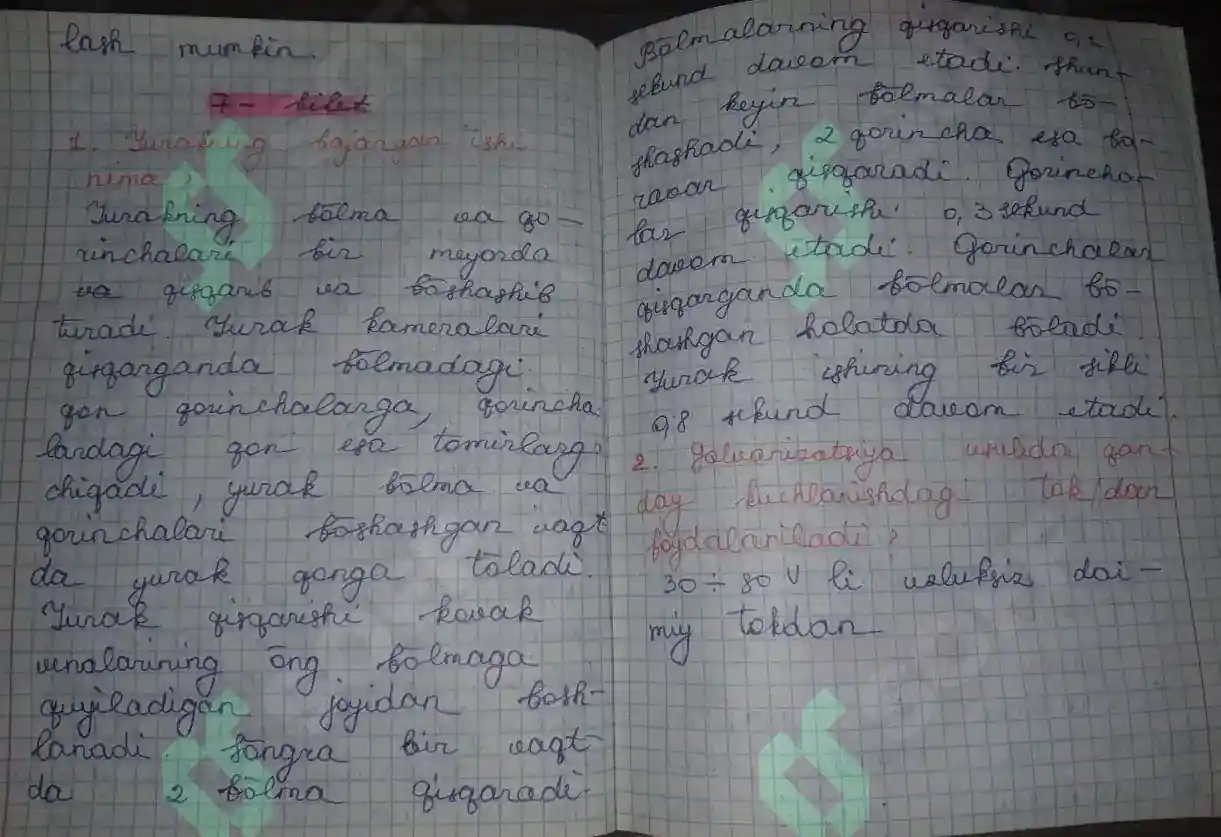 lash mumkin.
7 - bilet
1. Yurakning bajargan ishi
nima?
Yurakning bōlma va qo-
rinchalari bir meyorda
va qisqarib va bōshashib
turadi. Yurak kameralari
qisqarganda bōlmadagi
qon qorinchalarga, qorincha
lardagi qon esa tomirlarga
chiqadi, yurak bōlma va
qorinchalari bōshashgan vaqt
da yurak qonga tōladi.
Yurak qisqarishi kovak
venalarining ōng bōlmaga
quyiladigan joyidan bosh-
lanadi. Sōngra bir vaqt-
da 2 bōlma qisqaradi.
Bōlmalarning qisqarishi 0,2
sekund davom etadi. Shun-
dan keyin bōlmalar bō-
shashadi, 2 qorincha esa ba-
ravar qisqaradi. Qorincha-
lar qisqarishi 0,3 sekund
davom etadi. Qorinchalar
qisqarganda bōlmalar bō-
shashgan holatda bōladi.
Yurak ishining bir sikli
0,8 sekund davom etadi.
2. Galvanizatsiya usulida qan-
day kuchlanishdagi tok/dan
foydalaniladi?
30 ÷ 80 V li uzluksiz doi-
miy tokdan